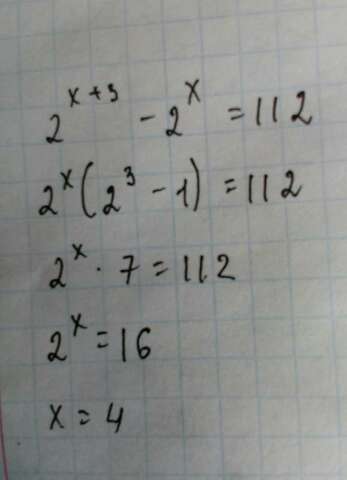 2^{x+3} - 2^x = 112
2^x (2^3 - 1) = 112
2^x · 7 = 112
2^x = 16
x = 4